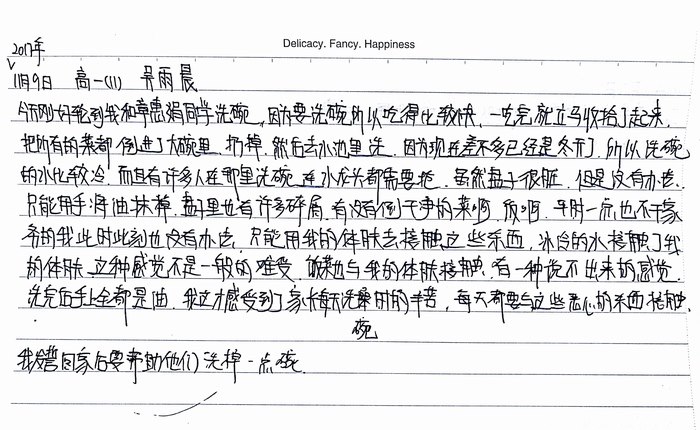 Delicacy. Fancy. Happiness
2017年
11月9日 高一(11) 雨晨
今天刚好轮到我和惠娟同学洗碗,因为要洗碗所以吃得比较快,一吃完就立马收拾了起来,
把所有的菜都倒进了大碗里,扔掉,然后去水池里洗,因为现在差不多已经是冬天了,所以洗碗
的水比较冷,而且有许多人在那里洗碗,连水龙头都需要抢,虽然盘子很脏,但是没有办法,
只能用手将油抹掉,盘子里也有许多碎屑,有没有倒干净的菜啊,饭啊,平时一点也不干家
务的我此时此刻也没有办法,只能用我的体肤去接触这些东西,冰冷的水接触了我
的体肤,这种感觉不是一般的难受,饭菜也与我的体肤接触,有一种说不出来的感觉,
洗完后手上全都是油,我这才感受到了家长每天洗碗时的辛苦,每天都要与这些恶心的东西接触,
碗
我发誓回家后要帮助他们洗掉一点碗